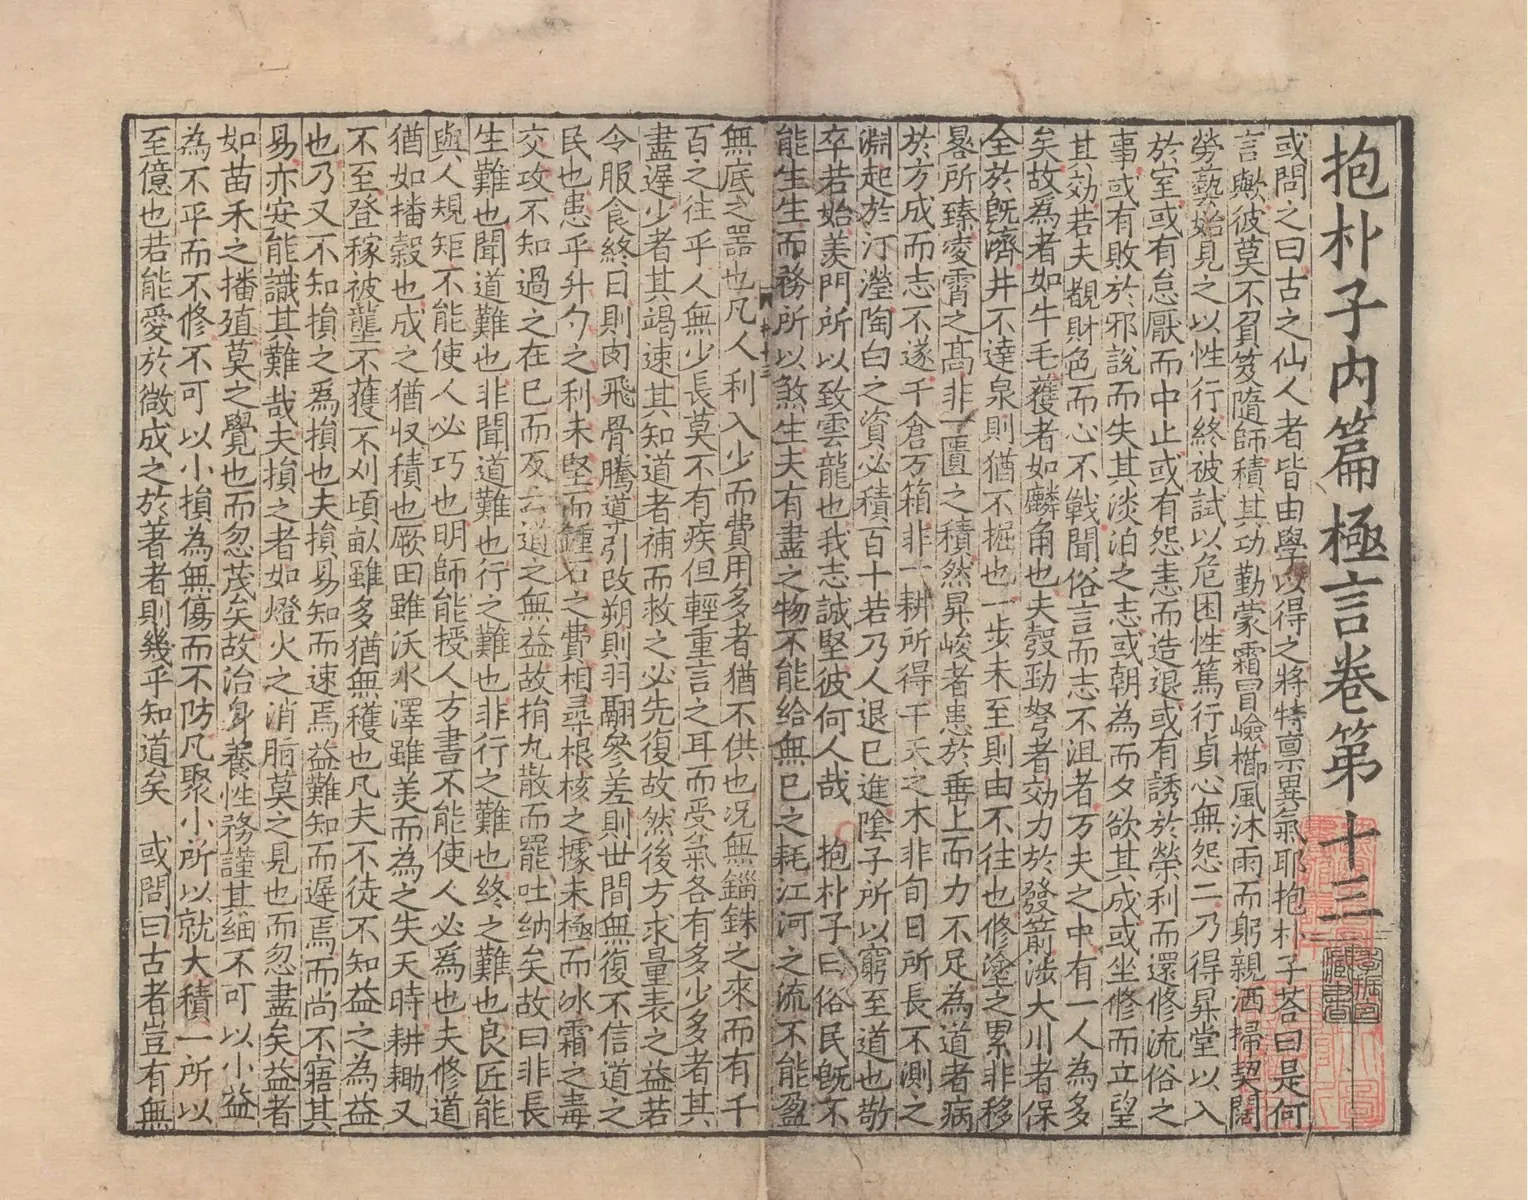 抱朴子内篇極言卷第十三
或問之曰古之仙人者皆由學以得之將特禀異氣耶抱朴子荅曰是何
言歟彼莫不負笈隨師積其功勤蒙霜冒嶮櫛風沐雨而躬親洒掃契闊
勞藝始見之以性行終被試以危困性篤行貞心無怨二乃得昇堂以入
於室或有怠厭而中止或有怨恚而造退或有誘於榮利而還修流俗之
事或有敗於邪說而失其淡泊之志或朝為而夕欲其成或坐修而立望
其効若夫覩財色而心不戰聞俗言而志不沮者万夫之中有一人為多
矣故為者如牛毛獲者如麟角也夫彀勁弩者効力於發箭涉大川者保
全於旣濟井不達泉則猶不掘也一步未至則由不往也修塗之累非移
晷所臻凌霄之髙非一匱之積然昇峻者患於垂上而力不足為道者病
於方成而志不遂千倉万箱非一耕所得干天之木非旬日所長不測之
淵起於汀瀅陶白之資必積百十若乃人退已進陰子所以窮至道也敬
卒若始羨門所以致雲龍也我志誠堅彼何人哉　抱朴子曰俗民旣不
能生生而務所以煞生夫有盡之物不能給無已之耗江河之流不能盈
無底之器也凡人利入少而費用多者猶不供也况無錙銖之來而有千
百之往乎人無少長莫不有疾但輕重言之耳而受氣各有多少多者其
盡遲少者其竭速其知道者補而救之必先復故然後方求量表之益若
令服食終日則肉飛骨騰導引改朔則羽翮參差則世間無復不信道之
民也患乎升勺之利未堅而鍾石之費相尋根核之據未極而冰霜之毒
交攻不知過之在已而反云道之無益故捐丸散而罷吐纳矣故曰非長
生難也聞道難也非聞道難也行之難也非行之難也終之難也良匠能
與人規矩不能使人必巧也明師能授人方書不能使人必為也夫修道
猶如播穀也成之猶収積也厥田雖沃水澤雖美而為之失天時耕耡又
不至登稼被壟不獲不刈頃畝雖多猶無穫也凡夫不徒不知益之為益
也乃又不知損之為損也夫損易知而速焉益難知而遲焉而尚不寤其
易亦安能識其難哉夫損之者如燈火之消脂莫之見也而忽盡矣益者
如苗禾之播殖莫之覺也而忽茂矣故治身養性務謹其細不可以小益
為不平而不修不可以小損為無傷而不防凡聚小所以就大積一所以
至億也若能愛於微成之於著者則幾乎知道矣　或問曰古者豈有無